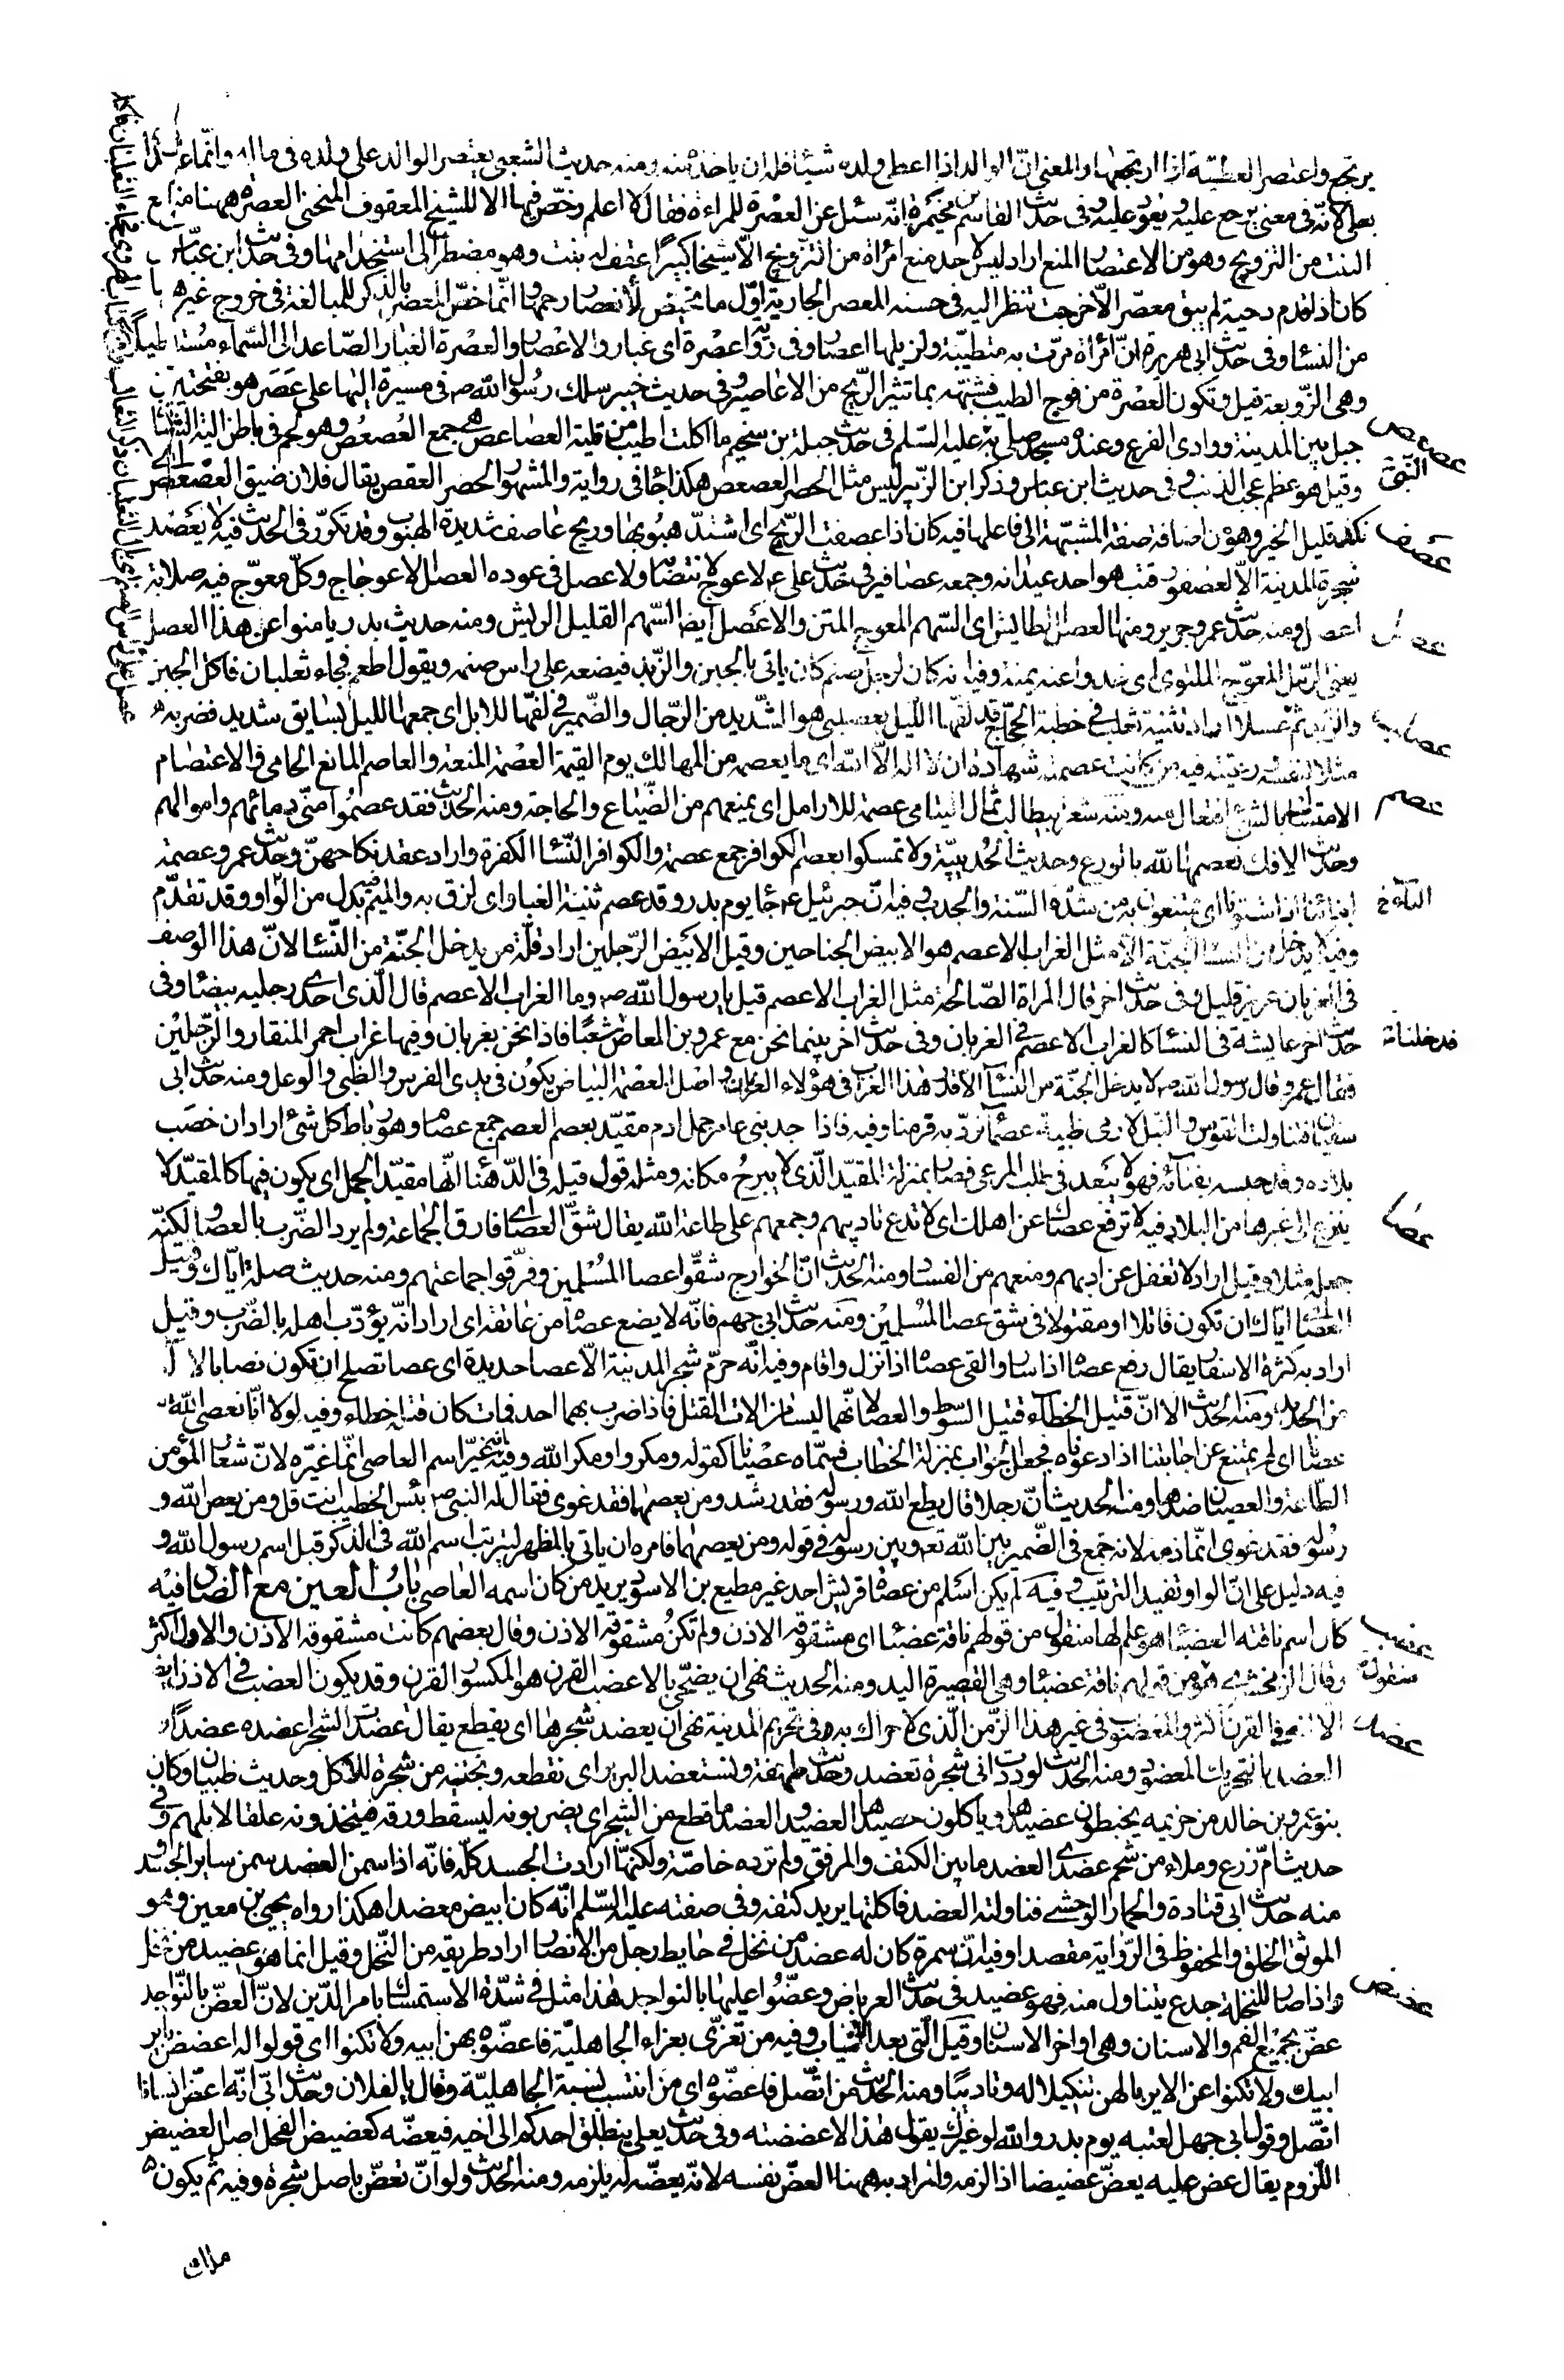 يرتجع واعتصر العطيّة اذا ارتجعها والمعنى انّ الوالد اذا اعطى ولده شيئا فله ان ياخذه منه ومنه حديث الشعبى يعتصر الوالد على ولده فى ماله وانّما عدّاه
بعلى لانّه فى معنى يرجع عليه ويعود عليه وفى حديث القاسم بن مخيمرة انّه سئل عن العصرة للمراءة فقال لا اعلم رخّص فيها الا للشيخ المعقوف المنحنى العصرة ههنا منع
البنت من التزويج وهو من الاعتصار المنع اراد ليس لاحد منع امراة من التزويج الّا شيخا كبيرا اعقف له بنت وهو مضطرّ الى استخدامها وفى حديث ابن عبّاس
كان اذا قدم دحية لم يبق معصر الّا خرجت تنظر اليه فى حسنه المعصر الجارية اوّل ما تحيض لانعصار رحمها وانّما خصّ المعصر بالذكر للمبالغة فى خروج غيرها
من النساء وفى حديث ابى هريرة انّ امراة مرّت به متطيّبة ولذيلها اعصار وفى رواية عصرة اى غبار والاعصار والعصرة الغبار الصّاعد الى السّماء مستطيلا
وهى الزّوبعة قيل وتكون العصرة من فوح الطيب فشبّهه بما تثير الرّيح من الاعاصير وفى حديث خيبر سلك رسول الله ص فى مسيرة اليها على عَصَر هو بفتحتين
جبل بين المدينة ووادى الفرع وعنده مسجد صلى به عليه السّلم فى حديث جبلة بن سحيم ما اكلت اطيب من قلية العصاعص هى جمع العصعص وهو لحم فى باطن الية الشاة
وقيل هو عظم عجب الذنب وفى حديث ابن عباس وذكر ابن الزّبير ليس مثل الحصر العصعص هكذا جاء فى رواية والمشهور الحصر العقص يقال فلان ضيق العصعص اى
نكد قليل الخير وهو من اضافة صفة المشبّهة الى فاعلها فيه كان اذا عصفت الرّيح اى اشتدّ هبوبها وريح عاصف شديدة الهبوب وقد تكرّر فى الحديث فيه لا يعضد
شجرة المدينة الّا لعصفور قتب هو احد عيدانه وجمعه عصافير فى حديث على ع لا عوج لانتصابه ولا عصل فى عوده العصل الاعوجاج وكلّ معوّج فيه صلابة
اعصل ومنه حديث عمرو جرير ومنها العصل الطايش اى السّهم المعوج المتن والاعصل ايضا السّهم القليل الريش ومنه حديث بدر يامنوا عن هذا العصل
يعنى الرّمل المعوّج الملتوى اى خذوا عنه يمنة وفيه انه كان لرجل صنم كان ياتى بالجبن والزّبد فيضعه على راس صنمه ويقول اطعم فجاء ثعلبان فاكل الجبز
والزبد ثم عصلا اراد تثنية ثعلب فى خطبة الحجّاج قد لفّها اللّيل بعصلبى هو الشّديد من الرّجال والضّمير فى لفّها للابل اى جمعها الليل بسايق شديد فضربه
مثلا لنفسه ورعيّته فيه من كانت عصمته شهادة ان لا اله الّا الله اى ما يعصمه من المهالك يوم القيمة العصمة المنعة والعاصم المانع الحامى والاعتصام
الامتساك بالشئ افتعال منه ومنه شعر ابيطالب ثمال اليتامى عصمة للارامل اى يمنعهم من الضّياع والحاجة ومنه الحديث فقد عصموا منّى دمائهم واموالهم
وحديث الافك فعصمها الله بالورع وحديث الحديبيّة ولا تمسكوا بعصم الكوافر جمع عصمة والكوافر النّساء الكفرة واراد عقد نكاحهنّ وحديث عمر وعصمة
ابنائنا اذا شتونا اى يمتنعون به من شدّة السّنة والجدب وفيه انّ جبرئيل ع جاء يوم بدر وقد عصم ثنيّته الغبار اى لزق به والميم بدل من الواو وقد تقدّم
وفيه لا يدخل من النساء الجنّة الّا مثل الغراب الاعصم هو الابيض الجناحين وقيل الابيض الرّجلين اراد قلّة من يدخل الجنّة من النّساء لانّ هذا الوصف
فى الغربان عزيز قليل وفى حديث اخر قال المراة الصّالحة مثل الغراب الاعصم قيل يا رسول الله ص وما الغراب الاعصم قال الّذى احدى رجليه بيضاء وفى
حديث اخر عايشة فى النساء كالغراب الاعصم فى الغربان وفى حديث اخر بينما نحن مع عمرو بن العاص شعبًا فاذا نحن بغربان وفيها غراب احمر المنقار والرّجلين
فقال عمرو قال رسول الله ص لا يدخل الجنّة من النساء الا قدر هذا الغراب فى هؤلاء الغربان واصل العصمة البياض يكون فى يدى الفرس والظبى والوعل ومنه حديث ابى
سفيان فتناولت القوس والنبل لارمى ظبية عصماء نردّ به قرمنا وفيه فاذا جد بنى عامر جمل ادم مقيّد بعصم العصم جمع عصام وهو رباط كل شئ اراد ان خصب
بلاده قد حبسه بفنائه فهو لا يبعد فى طلب المرعى فصار بمنزلة المقيّد الّذى لا يبرح مكانه ومثله قول قيلة فى الدّهناء انّها مقيّد الجمل اى يكون فيها كالمقيّد لا
ينزع الى غيرها من البلاد فيه لا ترفع عصاك عن اهلك اى لا تدع تاديبهم وجمعهم على طاعة الله يقال شقّ العصا اى فارق الجماعة ولم يرد الضّرب بالعصا ولكنّه
جعله مثلا وقيل اراد لا تغفل عن ادبهم ومنعهم من الفساد ومنه الحديث انّ الخوارج شقّوا عصا المسلمين وفرّقوا جماعتهم ومنه حديث صلة ايّاك وقتيل
العصا ايّاك ان تكون قاتلا او مقتولا فى شق عصا المسلمين ومنه حديث ابى جهم فانّه لا يضع عصاه من عاتقه اى اراد انّه يؤدّب اهله بالضّرب وقيل
اراد به كثرة الاسفار يقال رفع عصاه اذا سار والقى عصاه اذا نزل واقام وفيه انّه حرّم شجر المدينة الّا عصا حديدة اى عصا تصلح ان تكون نصابا لالة
من الحديد ومنه الحديث الا انّ قتيل الخطاء قتيل السّوط والعصا لانّهما ليسا من الات القتل فاذا ضرب بهما احد فمات كان قتله خطاء وفيه لولا انّا نعصى الله
عصانا اى لم يمتنع عن اجابتنا اذا دعوناه فجعل الجواب بمنزلة الخطاب فسمّاه عصيانا كقوله ومكروا ومكر الله وفيه انّه غيّر اسم العاصى انّما غيّره لانّ شعار المؤمن
الطّاعة والعصيان ضدها ومنه الحديث انّ رجلا قال من يطع الله ورسوله فقد رشد ومن يعصهما فقد غوى فقال له النبى ص بئس الخطيب انت قل ومن يعص الله و
رسوله فقد غوى انّما ذمّه لانه جمع فى الضّمير بين الله تع وبين رسوله فى قوله ومن يعصهما فامره ان ياتى بالمظهر ليترتب اسم الله فى الذكر قبل اسم رسول الله و
فيه دليل على انّ الواو تفيد الترتيب وفيه لم يكن اسلم من عصاة قريش احد غير مطيع بن الاسود يريد من كان اسمه العاصى باب العين مع الضاد فيه
كان اسم ناقته العضباء هو علم لها منقول من قولهم ناقة عضباء اى مشقوقة الاذن ولم تكن مشقوقة الاذن وقال بعضهم كانت مشقوقة الاذن والاول اكثر
وقال الزمخشرى هو من قولهم ناقة عضباء وهى القصيرة اليد ومنه الحديث نهى ان يضحّى بالاعضب القرن هو المكسور القرن وقد يكون العضب فى الاذن ايض
الا انّه فى القرن اكثر والمعضوب فى غير هذا الزّمن الّذى لا حراك به وفى تحريم المدينة نهى ان يعضد شجرها اى يقطع يقال عضدت الشجر اعضده عضدًا و
العضد بالتحريك المعضود ومنه الحديث لوددت انى شجرة تعضد وحديث طهفة ونستعضد البرير اى نقطعه ونجتنيه من شجره للاكل وحديث ظبيان وكان
بنو عمرو بن خالد من خزيمه يخبطون عضيدها وياكلون حصيدها العضيد والعضد ما قطع من الشجر اى يضربونه ليسقط ورقه فيتخذونه علفا لابلهم وفى
حديث امّ زرع وملاء من شحم عضدى العضد ما بين الكتف والمرفق ولم ترده خاصّة ولكنّها ارادت الجسد كلّه فانّه اذا سمن العضد سمن ساير الجسد و
منه حديث ابى قتادة والحمار الوحشى فناولته العضد فاكلتها يريد كتفه وفى صفته عليه السّلم انّه كان ابيض معضدا هكذا رواه يحيى بن معين وهو
الموثق الخلق والمحفوظ فى الرّواية مقصدا وفيه انّ سمرة كان له عضد من نخل فى حايط رجل من الانصار اراد طريقه من النّخل وقيل انما هو عضيد من نخل
واذا صار للنخلة جذع يتناول منه فهو عضيد فى حديث العرباض وعضّوا عليها بالنواجد هذا مثل فى شدّة الاستمساك بامر الدّين لانّ العضّ بالنّواجد
عضّ بجميع الفم والاسنان وهى اواخر الاسنان وقيل الّتى بعد الانياب وفيه من تعزّى بعزاء الجاهليّة فاعضّوه بهن ابيه ولا تكنوا اى قولوا له اعضض باير
ابيك ولا تكنوا عن الاير بالهن تنكيلا له وتاديبًا ومنه الحديث من اتّصل فاعضّوه اى من انتسب لنسبة الجاهليّة وقال يا لفلان وحديث ابىّ انّه اعضّ انسانا
اتّصل وقول ابى جهل لعتبه يوم بدر والله لو غيرك يقول هذا لاعضضته وفى حديث يعلى ينطلق احدكم الى اخيه فيعضّه كعضيض الفحل اصل العضيض
اللّزوم يقال عض عليه يعضّ عضيضا اذا لزمه والمراد به ههنا العضّ نفسه لانّه يعضّه له يلزمه ومنه الحديث ولو انّ تعضّ باصل شجرة وفيه ثم يكون
ملك
عصعص
النبق
عصف
عصل
عصلب
عصم
البلاغ
فدخلنا
عصا
عضب
منقول
عضد
عضض